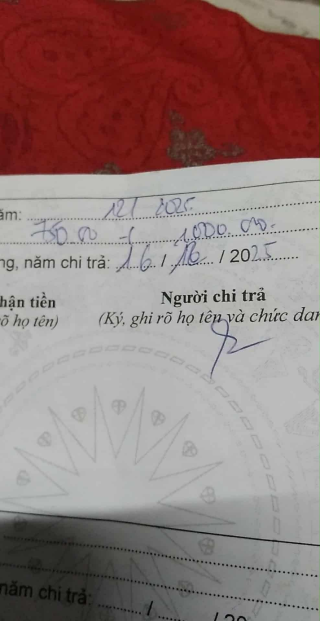 ăm: 12/ 2025
750.00 + 1000.00.
ng, năm chi trả: 16 / 16 / 2025
hận tiền Người chi trả
õ họ tên) (Ký, ghi rõ họ tên và chức dan
năm chi trả: / / 20